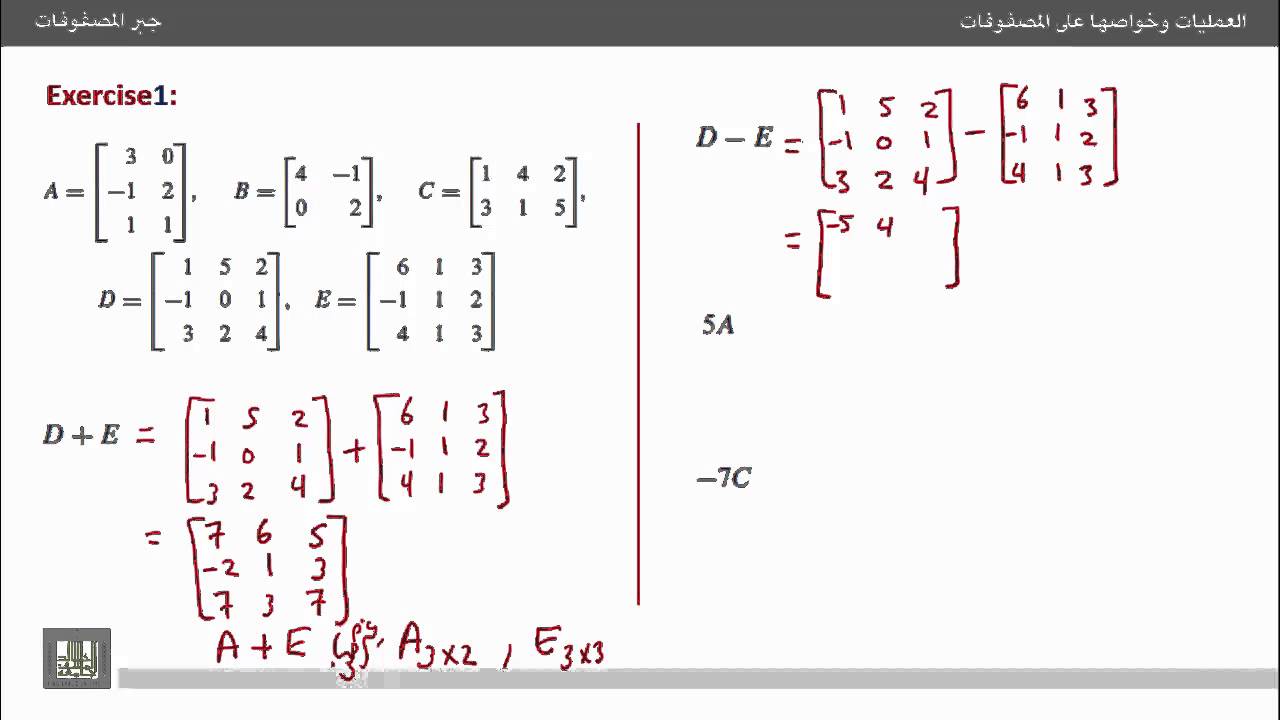 جبر المصفوفات
العمليات وخواصها على المصفوفات
Exercise1:
A = [ 3 0
-1 2
1 1 ],
B = [ 4 -1
0 2 ],
C = [ 1 4 2
3 1 5 ],
D = [ 1 5 2
-1 0 1
3 2 4 ],
E = [ 6 1 3
-1 1 2
4 1 3 ]
D + E = [ 1 5 2
-1 0 1
3 2 4 ] + [ 6 1 3
-1 1 2
4 1 3 ]
= [ 7 6 5
-2 1 3
7 3 7 ]
A + E A3×2 , E3×3
D − E = [ 1 5 2
-1 0 1
3 2 4 ] − [ 6 1 3
-1 1 2
4 1 3 ]
= [ -5 4 ]
5A
−7C